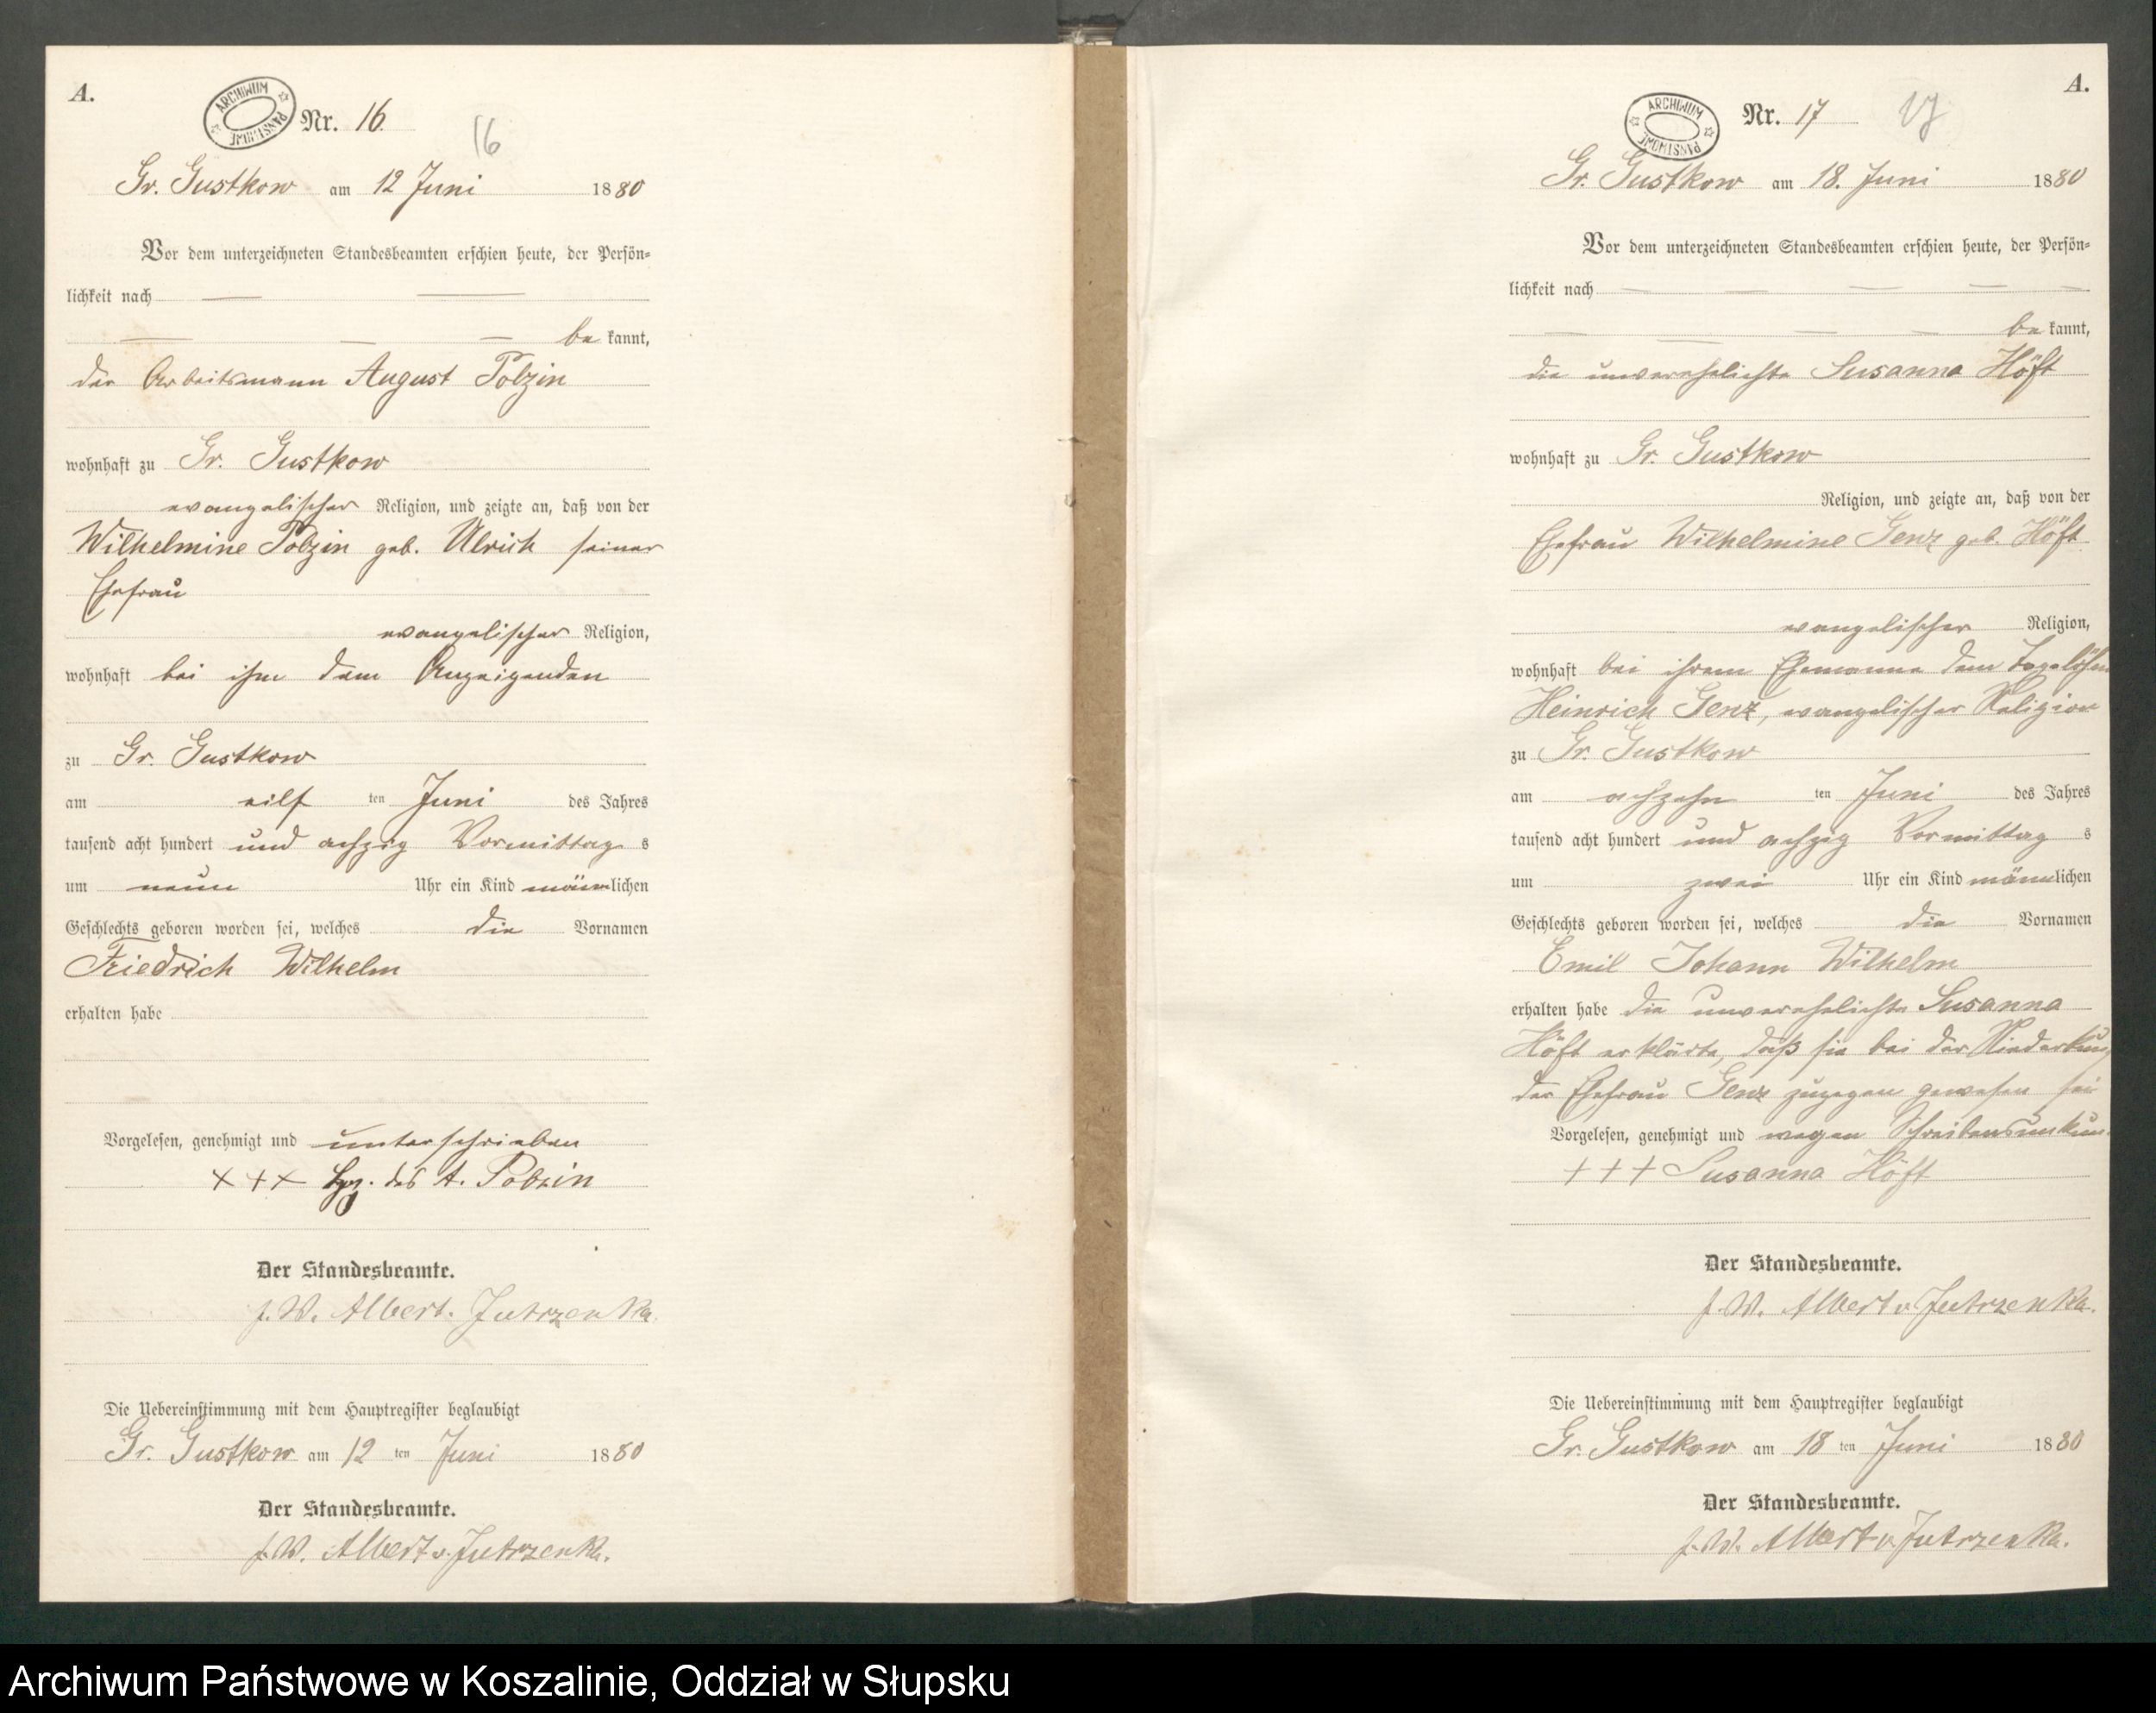 A.
ARCHIWUM PAŃSTWOWE
Nr. 16.
16
Gr. Gustkow am 12 Juni 1880
Vor dem unterzeichneten Standesbeamten erschien heute, der Persön-
lichkeit nach
be kannt,
der Arbeitsmann August Polzin
wohnhaft zu Gr. Gustkow
evangelischer Religion, und zeigte an, daß von der
Wilhelmine Polzin geb. Ulrich seiner
Ehefrau
evangelischer Religion,
wohnhaft bei ihm dem Anzeigenden
zu Gr. Gustkow
am eilf ten Juni des Jahres
tausend acht hundert und achzig Vormittag s
um neun Uhr ein Kind männlichen
Geschlechts geboren worden sei, welches die Vornamen
Friedrich Wilhelm
erhalten habe
Vorgelesen, genehmigt und unterschrieben
+++ Hzg. des A. Polzin
Der Standesbeamte.
J. W. Albert. Jutrzenka
Die Uebereinstimmung mit dem Hauptregister beglaubigt
Gr. Gustkow am 12 ten Juni 1880
Der Standesbeamte.
J. W. Albert v. Jutrzenka.
A.
ARCHIWUM PAŃSTWOWE
Nr. 17
17
Gr. Gustkow am 18. Juni 1880
Vor dem unterzeichneten Standesbeamten erschien heute, der Persön-
lichkeit nach
be kannt,
die unverehelichte Susanna Höft
wohnhaft zu Gr. Gustkow
Religion, und zeigte an, daß von der
Ehefrau Wilhelmine Genz geb. Höft
evangelischer Religion,
wohnhaft bei ihrem Ehemanne dem Tagelöhner
Heinrich Genz, evangelischer Religion
zu Gr. Gustkow
am achzehn ten Juni des Jahres
tausend acht hundert und achzig Vormittag s
um zwei Uhr ein Kind männlichen
Geschlechts geboren worden sei, welches die Vornamen
Emil Johann Wilhelm
erhalten habe die unverehelichte Susanna
Höft erklärte, daß sie bei der Niederkunf
der Ehefrau Genz zugegen gewesen sei
Vorgelesen, genehmigt und wegen Schreibensunkun.
+++ Susanna Höft
Der Standesbeamte.
J. W. Albert v. Jutrzenka.
Die Uebereinstimmung mit dem Hauptregister beglaubigt
Gr. Gustkow am 18 ten Juni 1880
Der Standesbeamte.
J. W. Albert v. Jutrzenka.
Archiwum Państwowe w Koszalinie, Oddział w Słupsku